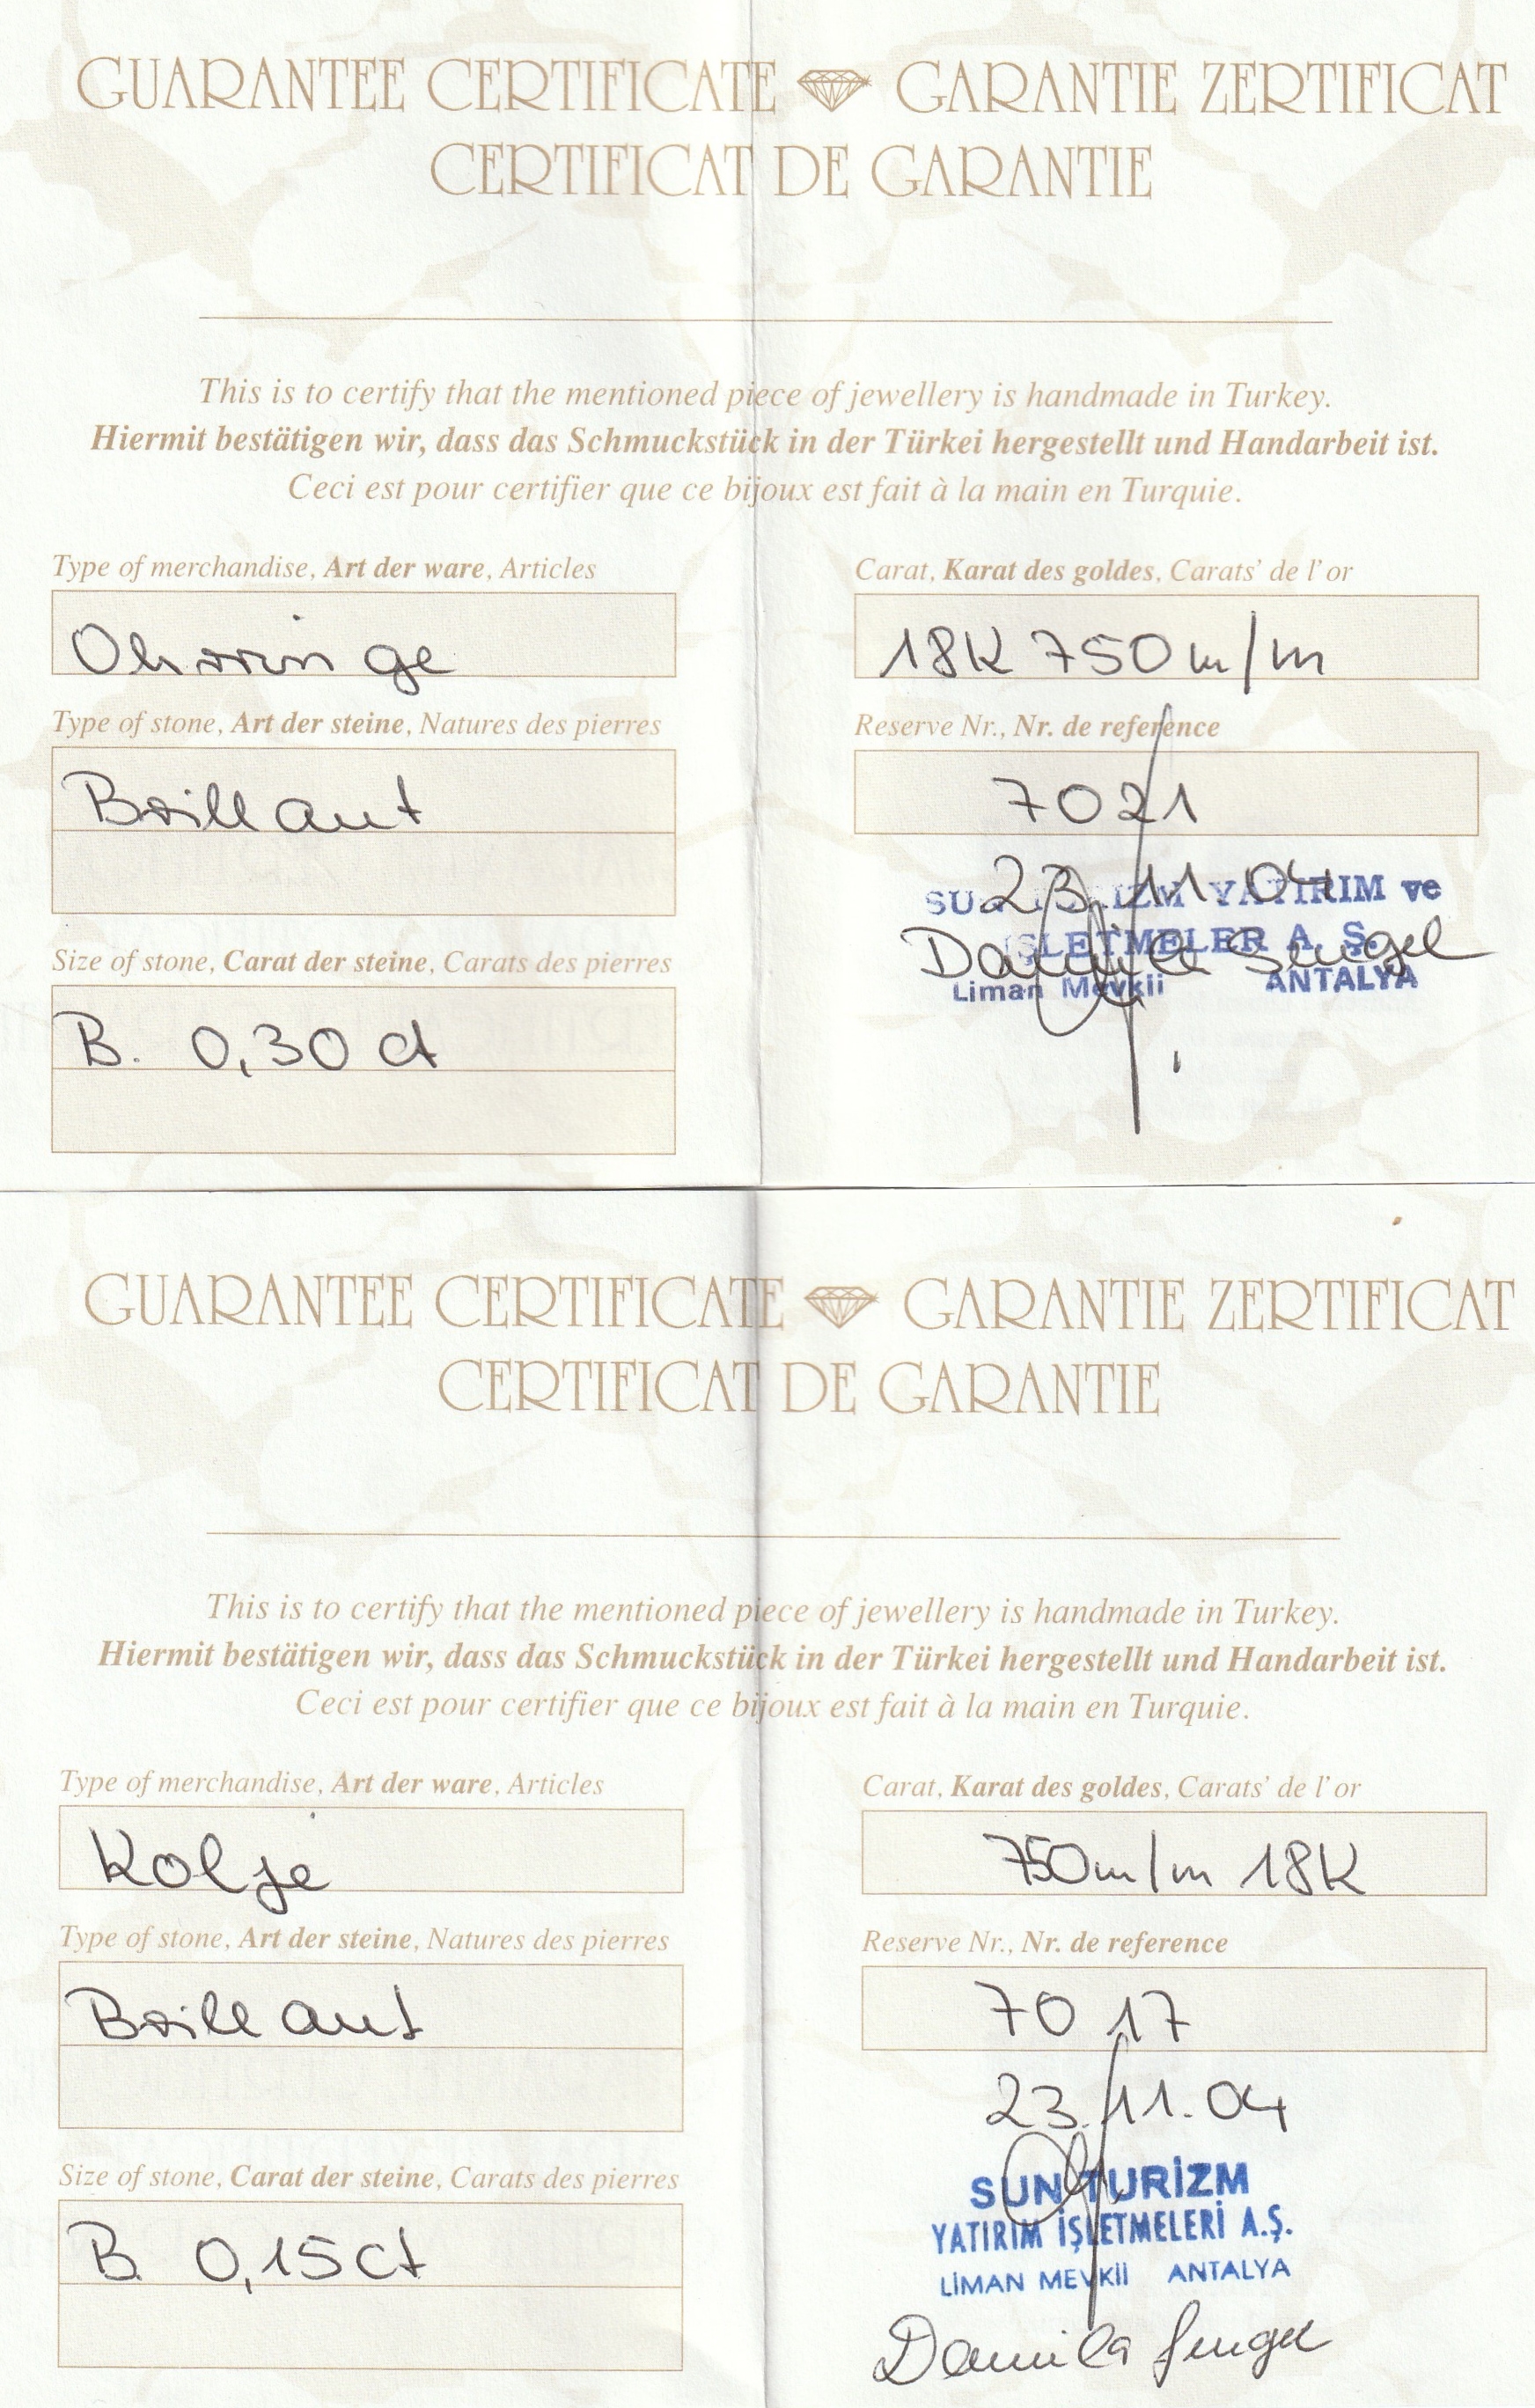 GUARANTEE CERTIFICATE GARANTIE ZERTIFICAT
CERTIFICAT DE GARANTIE
This is to certify that the mentioned piece of jewellery is handmade in Turkey.
Hiermit bestätigen wir, dass das Schmuckstück in der Türkei hergestellt und Handarbeit ist.
Ceci est pour certifier que ce bijoux est fait à la main en Turquie.
Type of merchandise, Art der ware, Articles
Ohrringe
Type of stone, Art der steine, Natures des pierres
Brillant
Size of stone, Carat der steine, Carats des pierres
B. 0,30 ct
Carat, Karat des goldes, Carats' de l'or
18K 750 m/m
Reserve Nr., Nr. de reference
7021
23.11.04
YATIRIM ve
İŞLETMELER A. Ş.
Liman Mevkii ANTALYA
GUARANTEE CERTIFICATE GARANTIE ZERTIFICAT
CERTIFICAT DE GARANTIE
This is to certify that the mentioned piece of jewellery is handmade in Turkey.
Hiermit bestätigen wir, dass das Schmuckstück in der Türkei hergestellt und Handarbeit ist.
Ceci est pour certifier que ce bijoux est fait à la main en Turquie.
Type of merchandise, Art der ware, Articles
Kolje
Type of stone, Art der steine, Natures des pierres
Brillant
Size of stone, Carat der steine, Carats des pierres
B. 0,15 ct
Carat, Karat des goldes, Carats' de l'or
750 m/m 18K
Reserve Nr., Nr. de reference
7017
23.11.04
SUN TURİZM
YATIRIM İŞLETMELERİ A.Ş.
LİMAN MEVKİİ ANTALYA